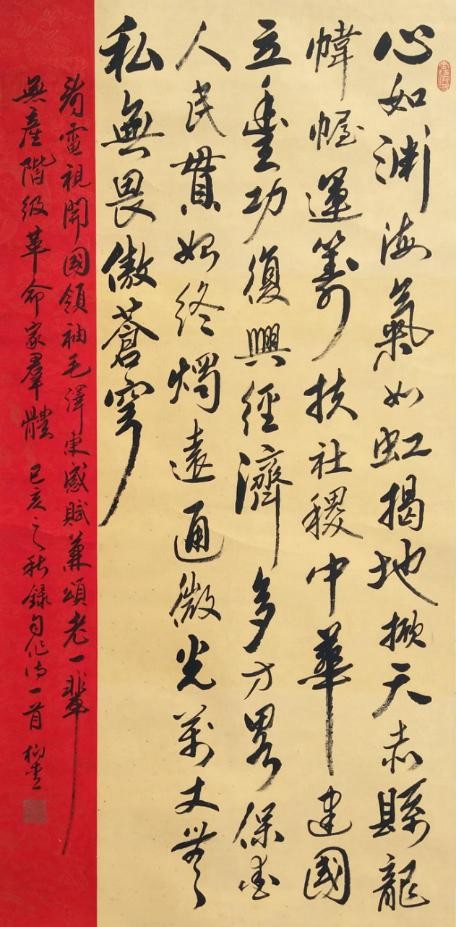 心如渊海氣如虹揭地掀天赤縣龍
帷幄運筹扶社稷中華建國
立豐功復興經濟多方略保衛
人民貫始終燭遠通微光萬丈無
私無畏傲蒼穹
看電視開國領袖毛澤東感賦兼頌老一輩
無產階級革命家羣體 己亥之秋錄自作詩一首